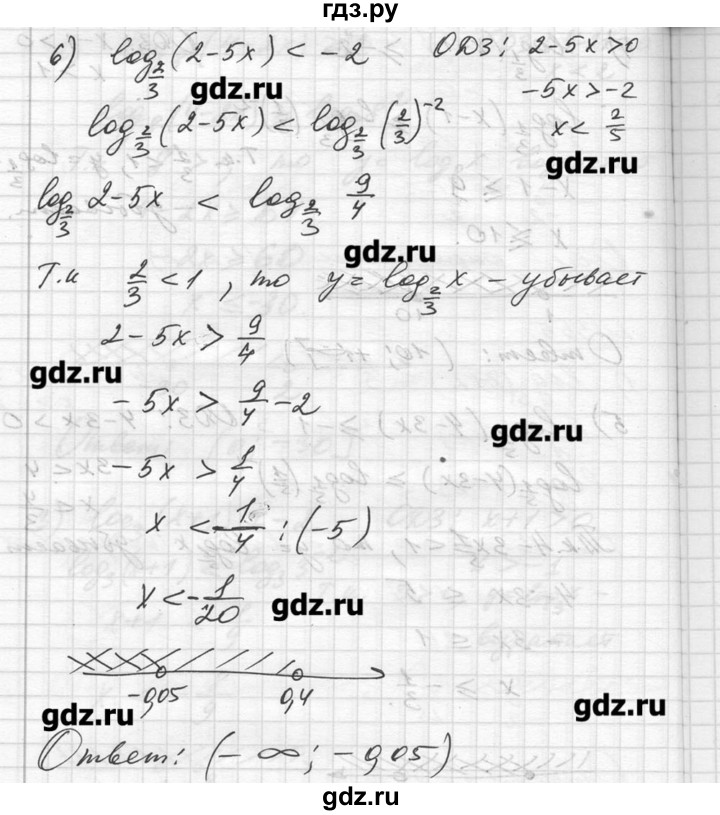 гдз.ру
6) log_{2/3}(2-5x) < -2   ОДЗ: 2-5x>0
-5x>-2
gdz.ru
log_{2/3}(2-5x) < log_{2/3}(2/3)^{-2}   x< 2/5
gdz.ru
log_{2/3} 2-5x < log_{2/3} 9/4
gdz.ru
Т.к 2/3 <1, то y= log_{2/3} x - убывает
2-5x> 9/4
gdz.ru
-5x> 9/4 -2
gdz.ru
-5x> 1/4
x < 1/4 : (-5)
x<- 1/20
gdz.ru
-0,05   0,4
gdz.ru   gdz.ru
Ответ: (-∞; -0,05)
gdz.ru